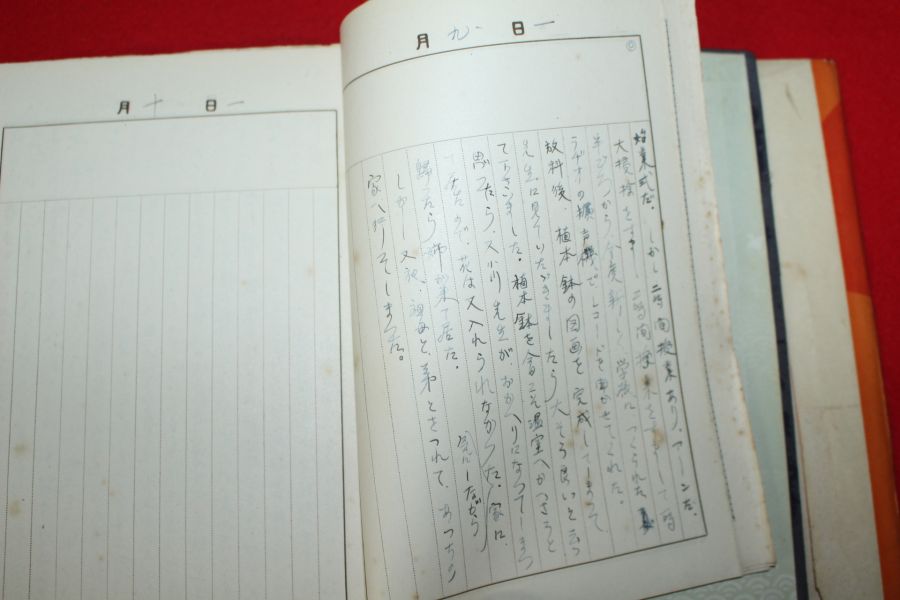 月九日一
始業式だ。しかし二時間授業あり、アーンだ。
大掃除をすまし二時間授業をすまして一時
半ごろから今度新しく学校につくられた
ラヂオの擴声機でレコードを聞かせてくれた。
放課後、植木鉢の図画を完成してしまって
先生に見ていただきましたら大そう良いと云っ
て下さいました。植木鉢を今こそ温室へかへさうと
思ったら、小川先生がおかへりになってしまっ
て居たので、花は又入れられなかった。家に
歸ったら姉が来て居た。
しかし又祖母と、弟とをつれて、あっちの
家へ行ってしまった。
月十日一